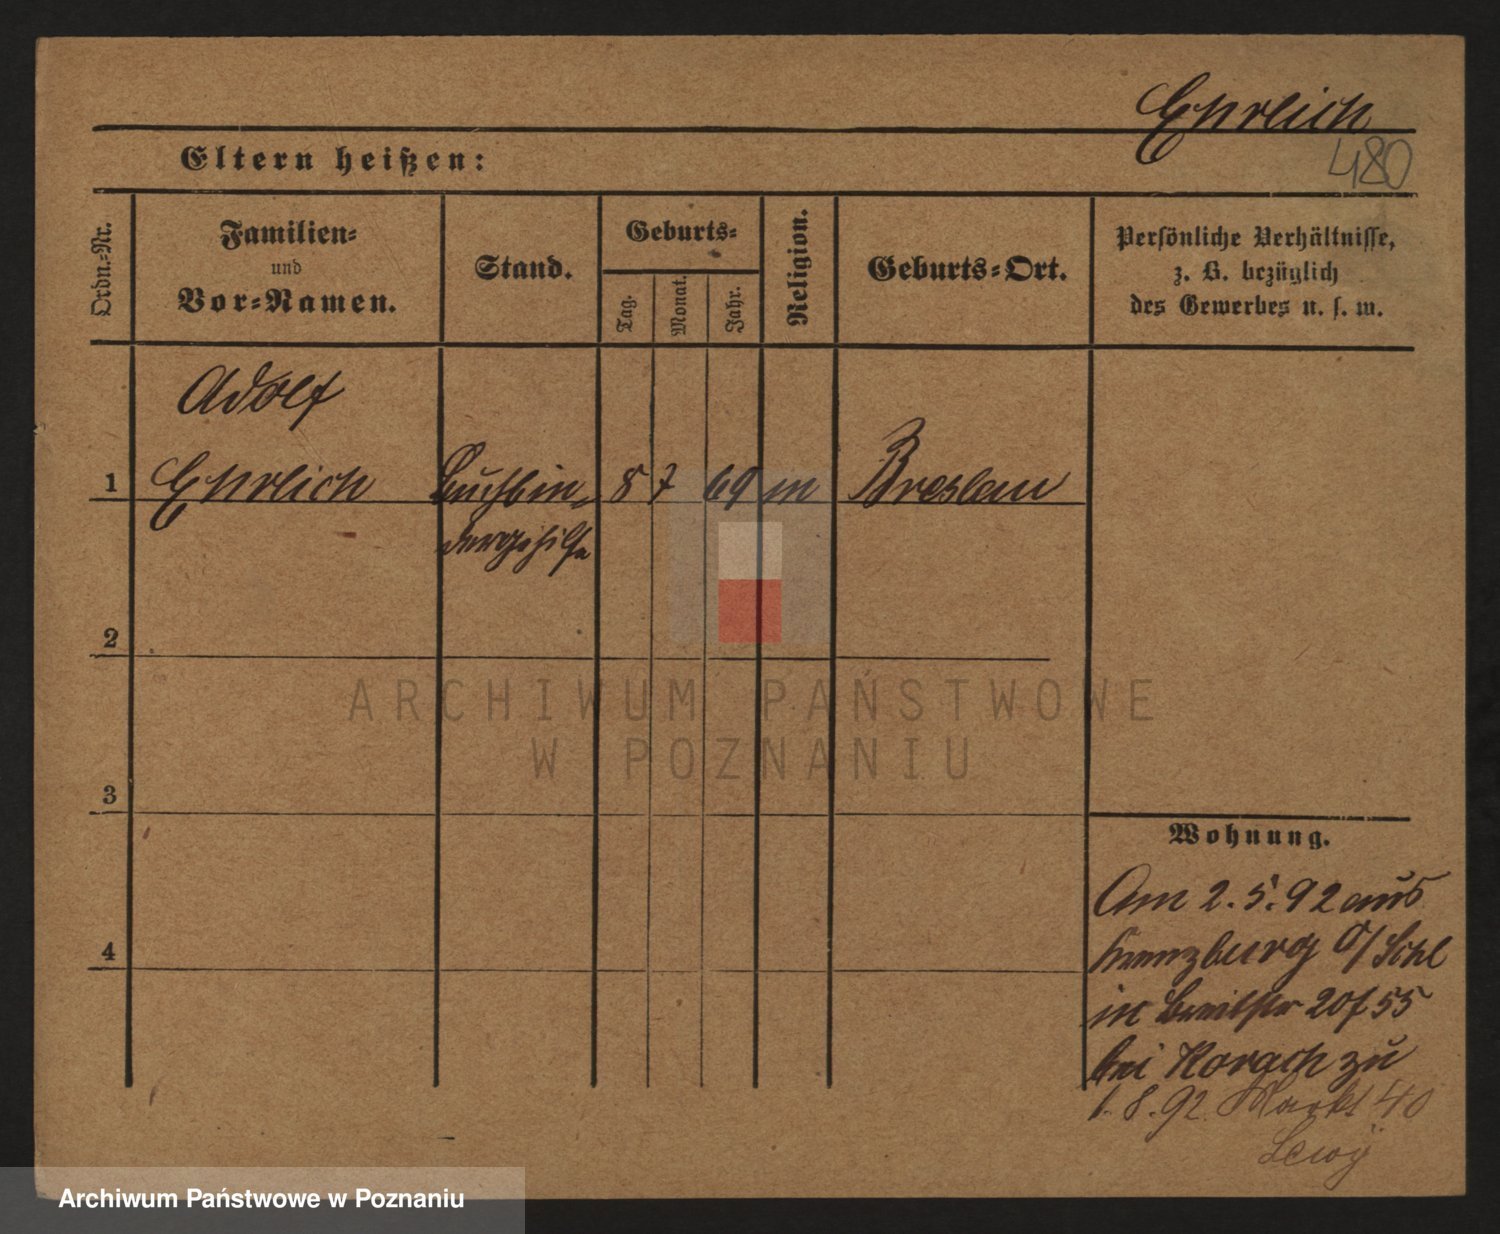 Ehrlich
480
Eltern heißen:
Ordn.-Nr.
Familien-
und
Vor-Namen.
Stand.
Geburts-
Tag.
Monat.
Jahr.
Religion.
Geburts-Ort.
Persönliche Verhältnisse,
z. B. bezüglich
des Gewerbes u. s. w.
Adolf
1 Ehrlich Buchbin- 8 7 69 m Breslau
dergehilfe
2
ARCHIWUM PAŃSTWOWE
W POZNANIU
3
Wohnung.
Am 2.5.92 aus
Kreuzburg O/Schl
in Breitstr 20 55
bei Korach zu
4
1.8.92. Markt 40
Lewy
Archiwum Państwowe w Poznaniu